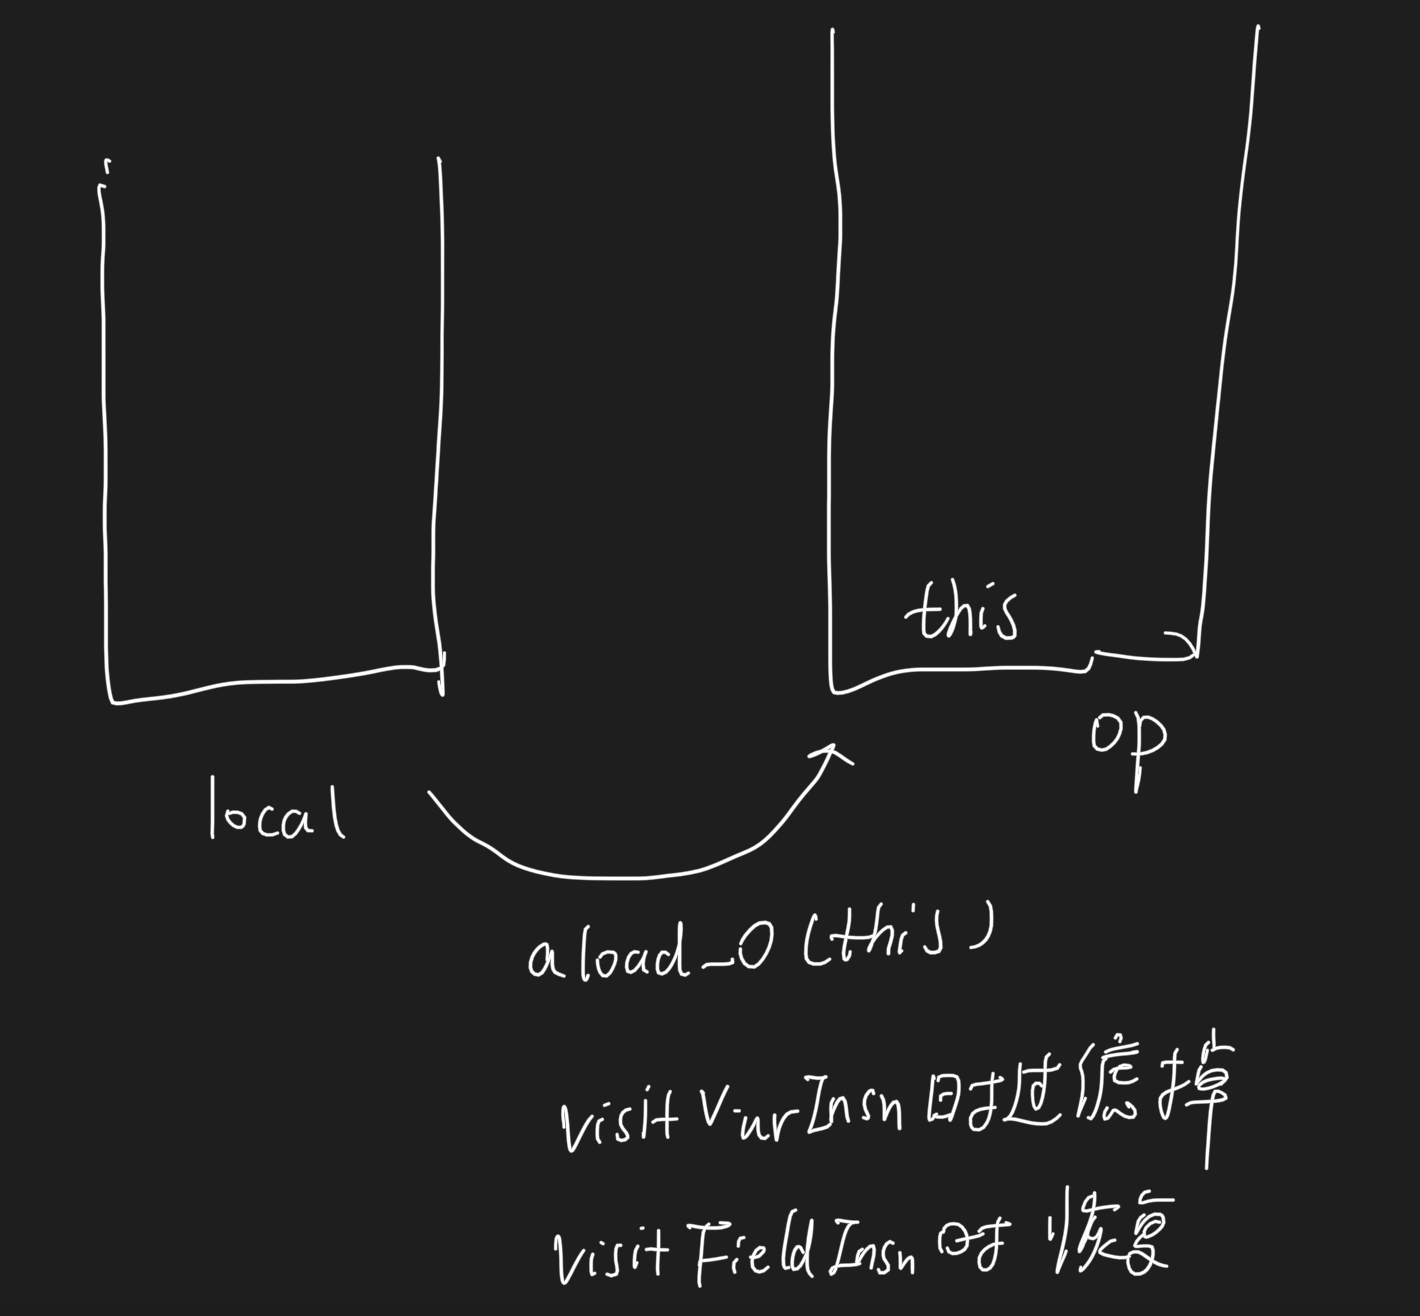 this
op
local
aload_0 (this)
visitVarInsn时过滤掉
visitFieldInsn时恢复